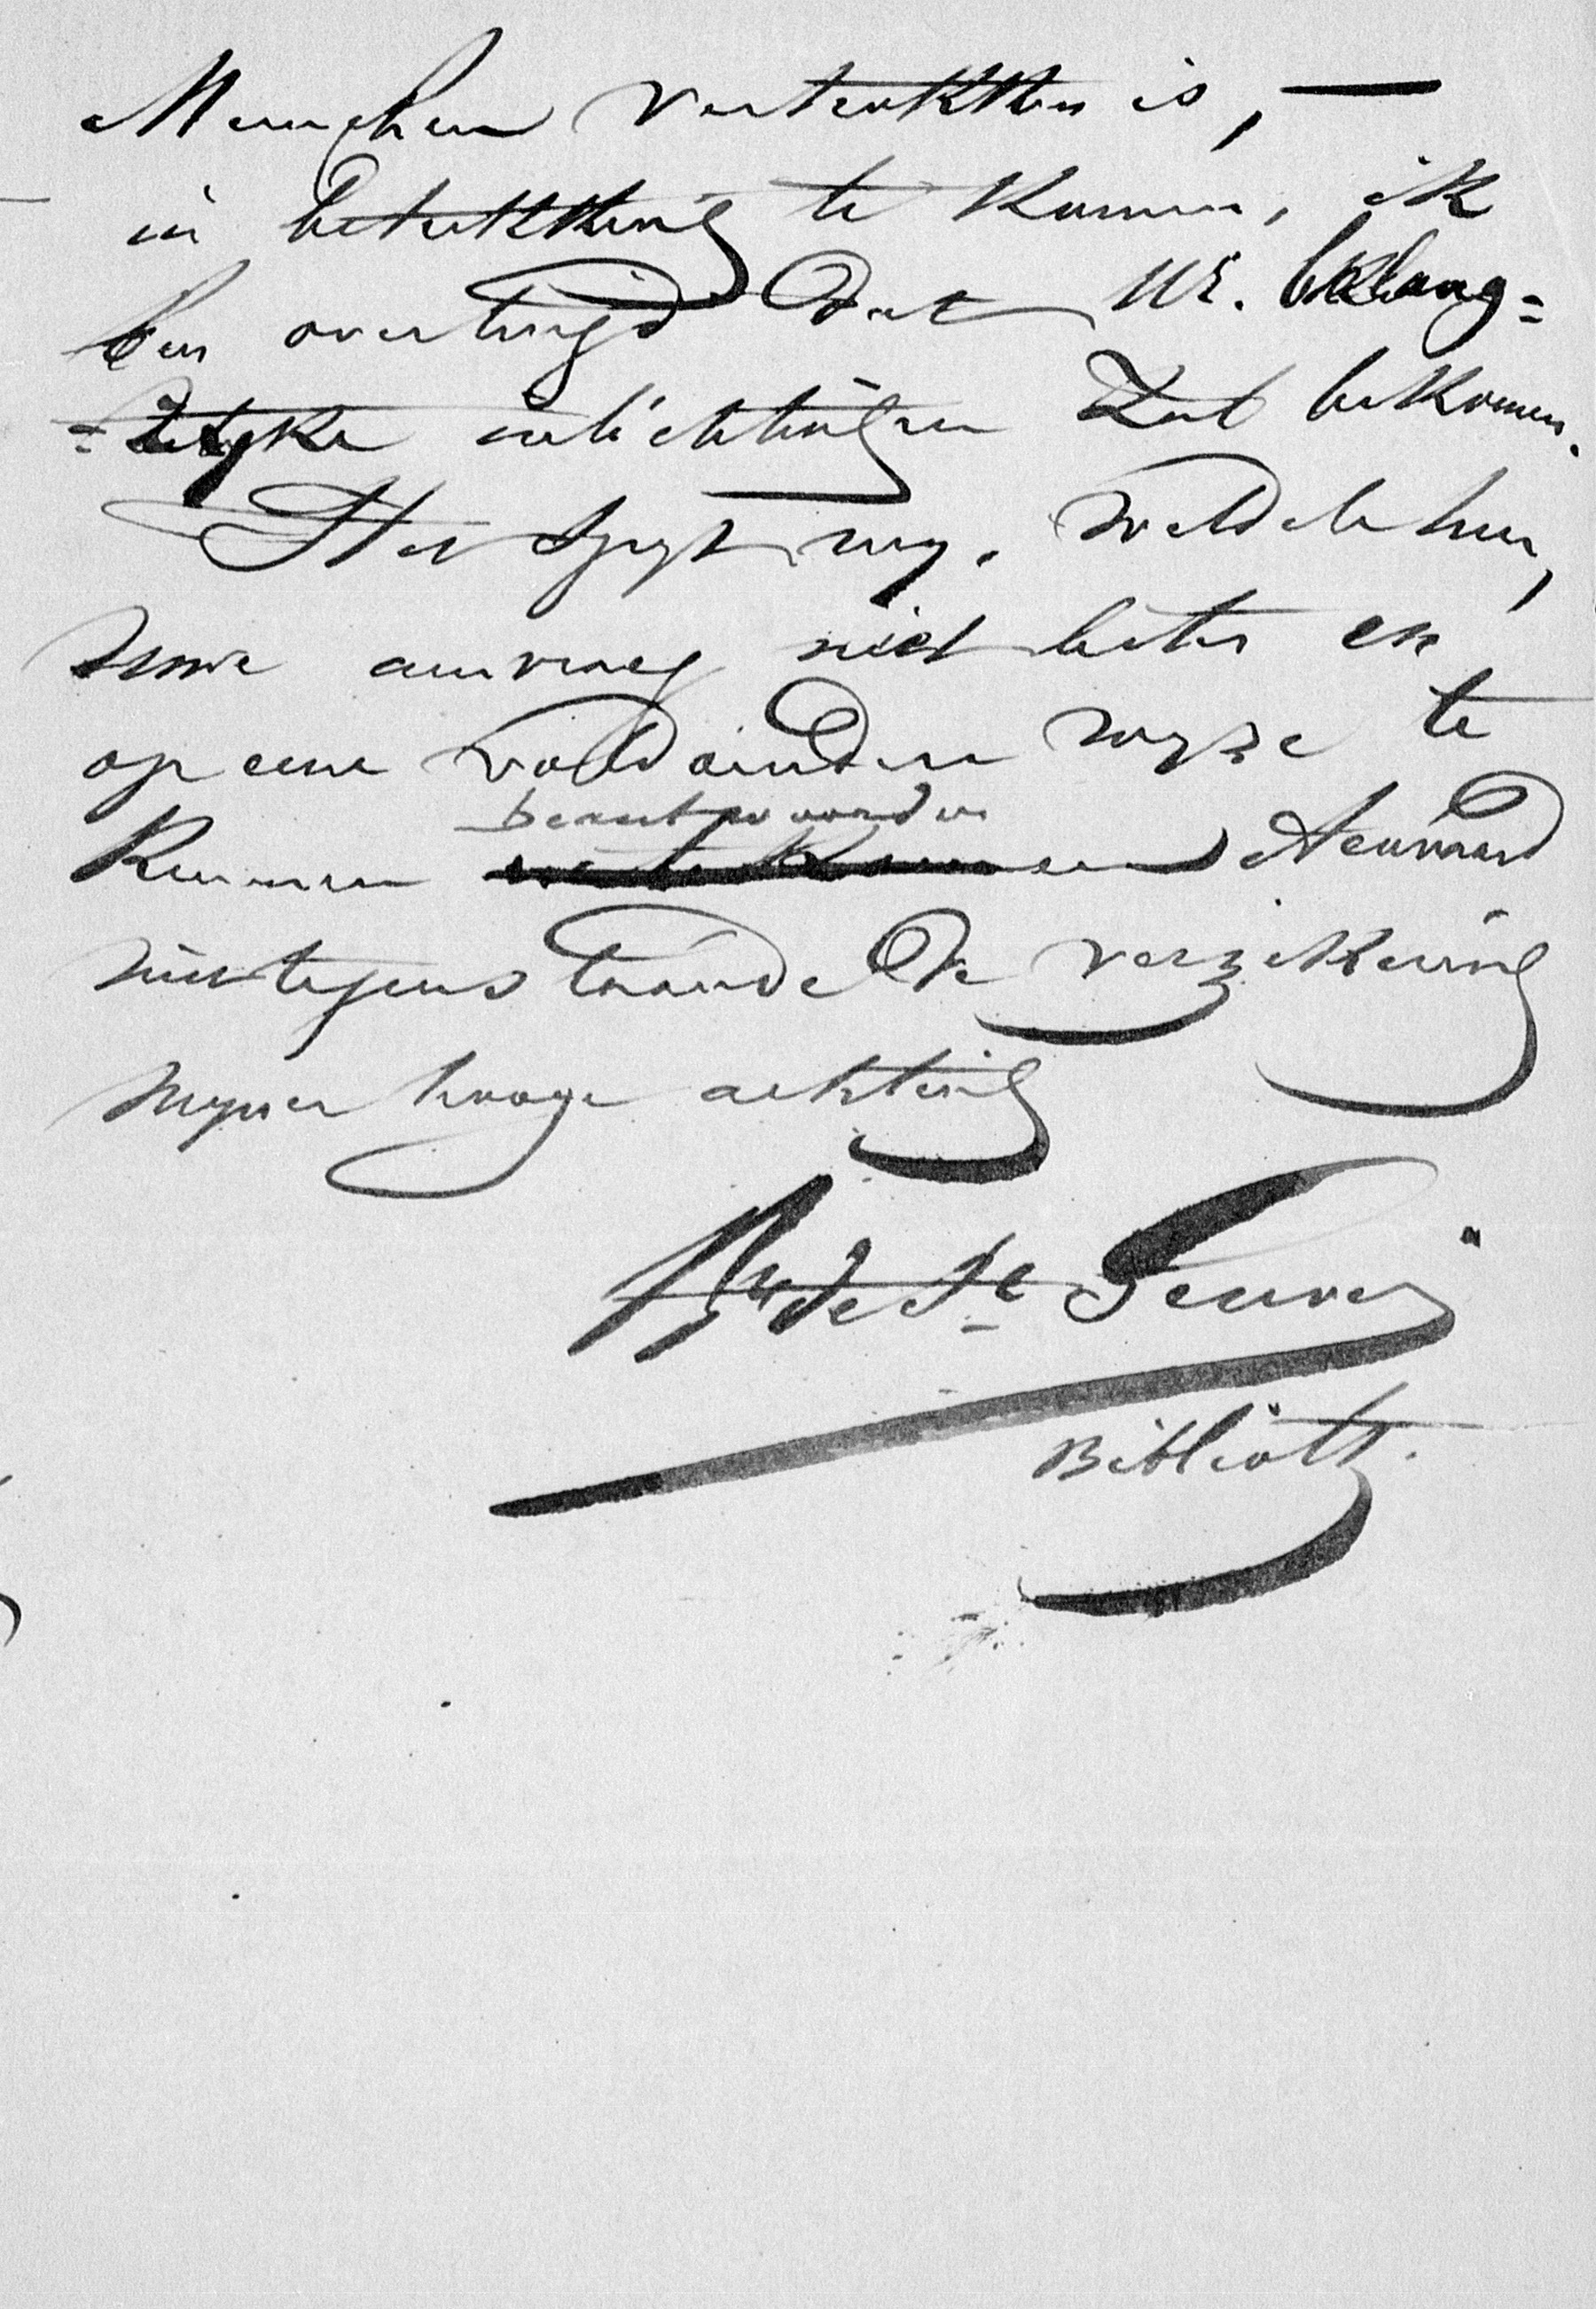 Munchen vertrokken is, —
in betrekking te komen, ik
ben overtuigd dat UE. belang=
=ryke inlichtingen zal bekomen.
Het spyt my. WelEdele heer,
Uwe aanvraag niet beter en
op eene voldoendere wyze te
Kunnen beantwoorden Aenvaard
niettegenstaande de verzekering
myner hooge achting
de St Genois
Biblioth.